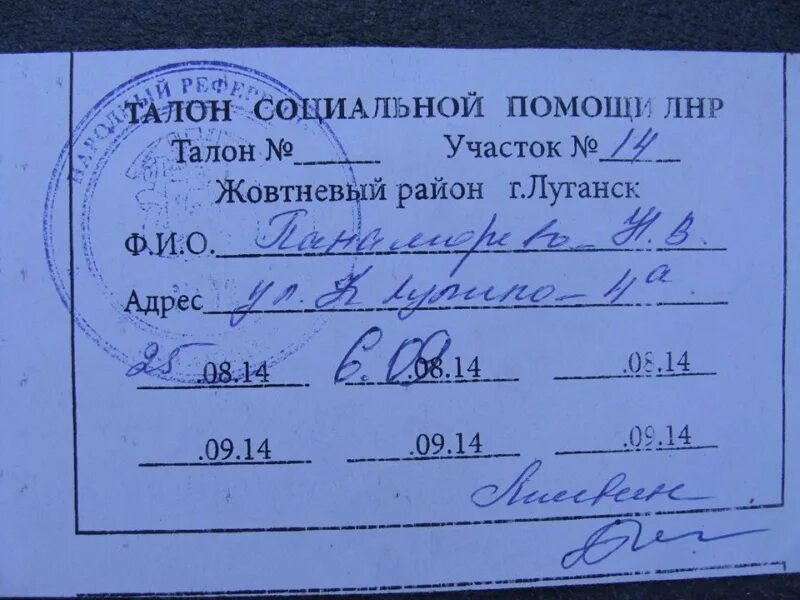 НАРОДНЫЙ РЕФЕРЕ
ТАЛОН СОЦИАЛЬНОЙ ПОМОЩИ ЛНР
Талон №______ Участок № 14
Жовтневый район г.Луганск
Ф.И.О. Н.В.
Адрес ул. 4а
25.08.14 6.09.08.14 .08.14
.09.14 .09.14 .09.14